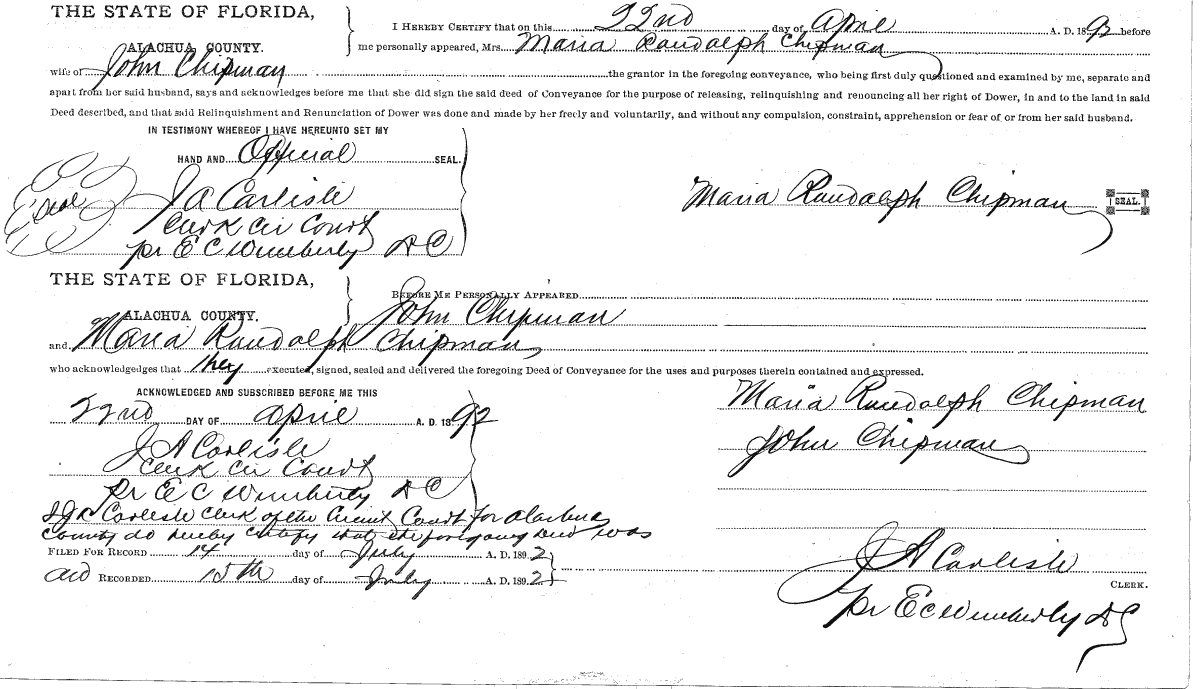 THE STATE OF FLORIDA,
ALACHUA COUNTY.
I HEREBY CERTIFY that on this 22nd day of April A. D. 1892 before
me personally appeared, Mrs. Maria Randolph Chipman
wife of John Chipman the grantor in the foregoing conveyance, who being first duly questioned and examined by me, separate and
apart from her said husband, says and acknowledges before me that she did sign the said deed of Conveyance for the purpose of releasing, relinquishing and renouncing all her right of Dower, in and to the land in said
Deed described, and that said Relinquishment and Renunciation of Dower was done and made by her freely and voluntarily, and without any compulsion, constraint, apprehension or fear of or from her said husband.
IN TESTIMONY WHEREOF I HAVE HEREUNTO SET MY
HAND AND Official SEAL.
Seal
J A Carlisle
Clerk Cir Court
pr E C Wimberly D C
Maria Randolph Chipman SEAL.
THE STATE OF FLORIDA,
ALACHUA COUNTY.
BEFORE ME PERSONALLY APPEARED
John Chipman
and Maria Randolph Chipman
who acknowledgedges that they executed, signed, sealed and delivered the foregoing Deed of Conveyance for the uses and purposes therein contained and expressed.
ACKNOWLEDGED AND SUBSCRIBED BEFORE ME THIS
22nd DAY OF April A. D. 1892
J A Carlisle
Clerk Cir Court
pr E C Wimberly D C
Maria Randolph Chipman
John Chipman
I J A Carlisle Clerk of the Circuit Court for Alachua
County do hereby certify that the foregoing deed was
FILED FOR RECORD 14 day of July A. D. 1892
and RECORDED 15th day of July A. D. 1892
J A Carlisle
CLERK.
pr E C Wimberly D C